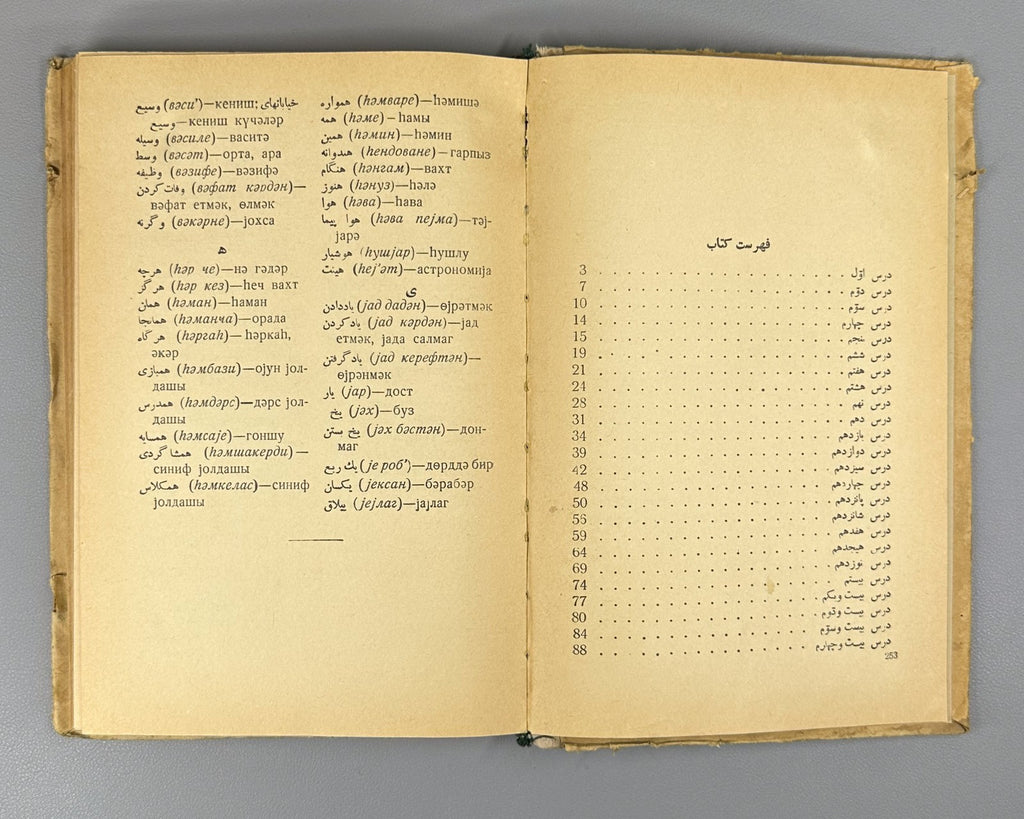 وسیع (вәси’)—кениш; خیابانهای
وسیع—кениш күчәләр
وسیله (вәсиле)—васитә
وسط (вәсәт)—орта, ара
وظیفه (вәзифе)—вәзифә
وفات کردن (вәфат кәрдән)—
вәфат етмәк, өлмәк
وگرنه (вәкәрне)—јохса
ه
هرچه (һәр че)—нә гәдәр
هرگز (һәр кез)—һеч вахт
همان (һәман)—һаман
همانجا (һәманҹа)—орада
هرگاه (һәргаһ)—һәркаһ,
әкәр
همبازی (һәмбази)—ојун јол-
дашы
همدرس (һәмдәрс)—дәрс јол-
дашы
همسایه (һәмсаје)—гоншу
همشاگردی (һәмшакерди)—
синиф јолдашы
همکلاس (һәмкелас)—синиф
јолдашы
همواره (һәмваре)—һәмишә
همه (һәме)—һамы
همین (һәмин)—һәмин
هندوانه (һендоване)—гарпыз
هنگام (һәнгам)—вахт
هنوز (һәнуз)—һәлә
هوا (һәва)—һава
هوا پیما (һәва пејма)—тәј-
јарә
هوشیار (һушјар)—һушлу
هیئت (һеј’әт)—астрономија
ی
یاددادن (јад дадән)—өјрәтмәк
یادکردن (јад кәрдән)—јад
етмәк, јада салмаг
یادگرفتن (јад керефтән)—
өјрәнмәк
یار (јар)—дост
یخ (јәх)—буз
یخ بستن (јәх бәстән)—дон-
маг
یك ربع (је роб’)—дөрддә бир
یکسان (јексан)—бәрабәр
ییلاق (јејлаг)—јајлаг
فهرست کتاب
درس اوّل . . . . . . . . . . . . . . . . . . 3
درس دوّم . . . . . . . . . . . . . . . . . . 7
درس سوّم . . . . . . . . . . . . . . . . . . 10
درس چهارم . . . . . . . . . . . . . . . . . . 14
درس پنجم . . . . . . . . . . . . . . . . . . 15
درس ششم . . . . . . . . . . . . . . . . . . 19
درس هفتم . . . . . . . . . . . . . . . . . . 21
درس هشتم . . . . . . . . . . . . . . . . . . 24
درس نهم . . . . . . . . . . . . . . . . . . 28
درس دهم . . . . . . . . . . . . . . . . . . 31
درس یازدهم . . . . . . . . . . . . . . . . . . 34
درس دوازدهم . . . . . . . . . . . . . . . . . . 39
درس سیزدهم . . . . . . . . . . . . . . . . . . 42
درس چهاردهم . . . . . . . . . . . . . . . . . . 48
درس پانزدهم . . . . . . . . . . . . . . . . . . 50
درس شانزدهم . . . . . . . . . . . . . . . . . . 56
درس هفدهم . . . . . . . . . . . . . . . . . . 59
درس هیجدهم . . . . . . . . . . . . . . . . . . 64
درس نوزدهم . . . . . . . . . . . . . . . . . . 69
درس بیستم . . . . . . . . . . . . . . . . . . 74
درس بیست ویکم . . . . . . . . . . . . . . . . 77
درس بیست ودوّم . . . . . . . . . . . . . . . . 80
درس بیست وسوّم . . . . . . . . . . . . . . . . 84
درس بیست وچهارم . . . . . . . . . . . . . . . . 88
253